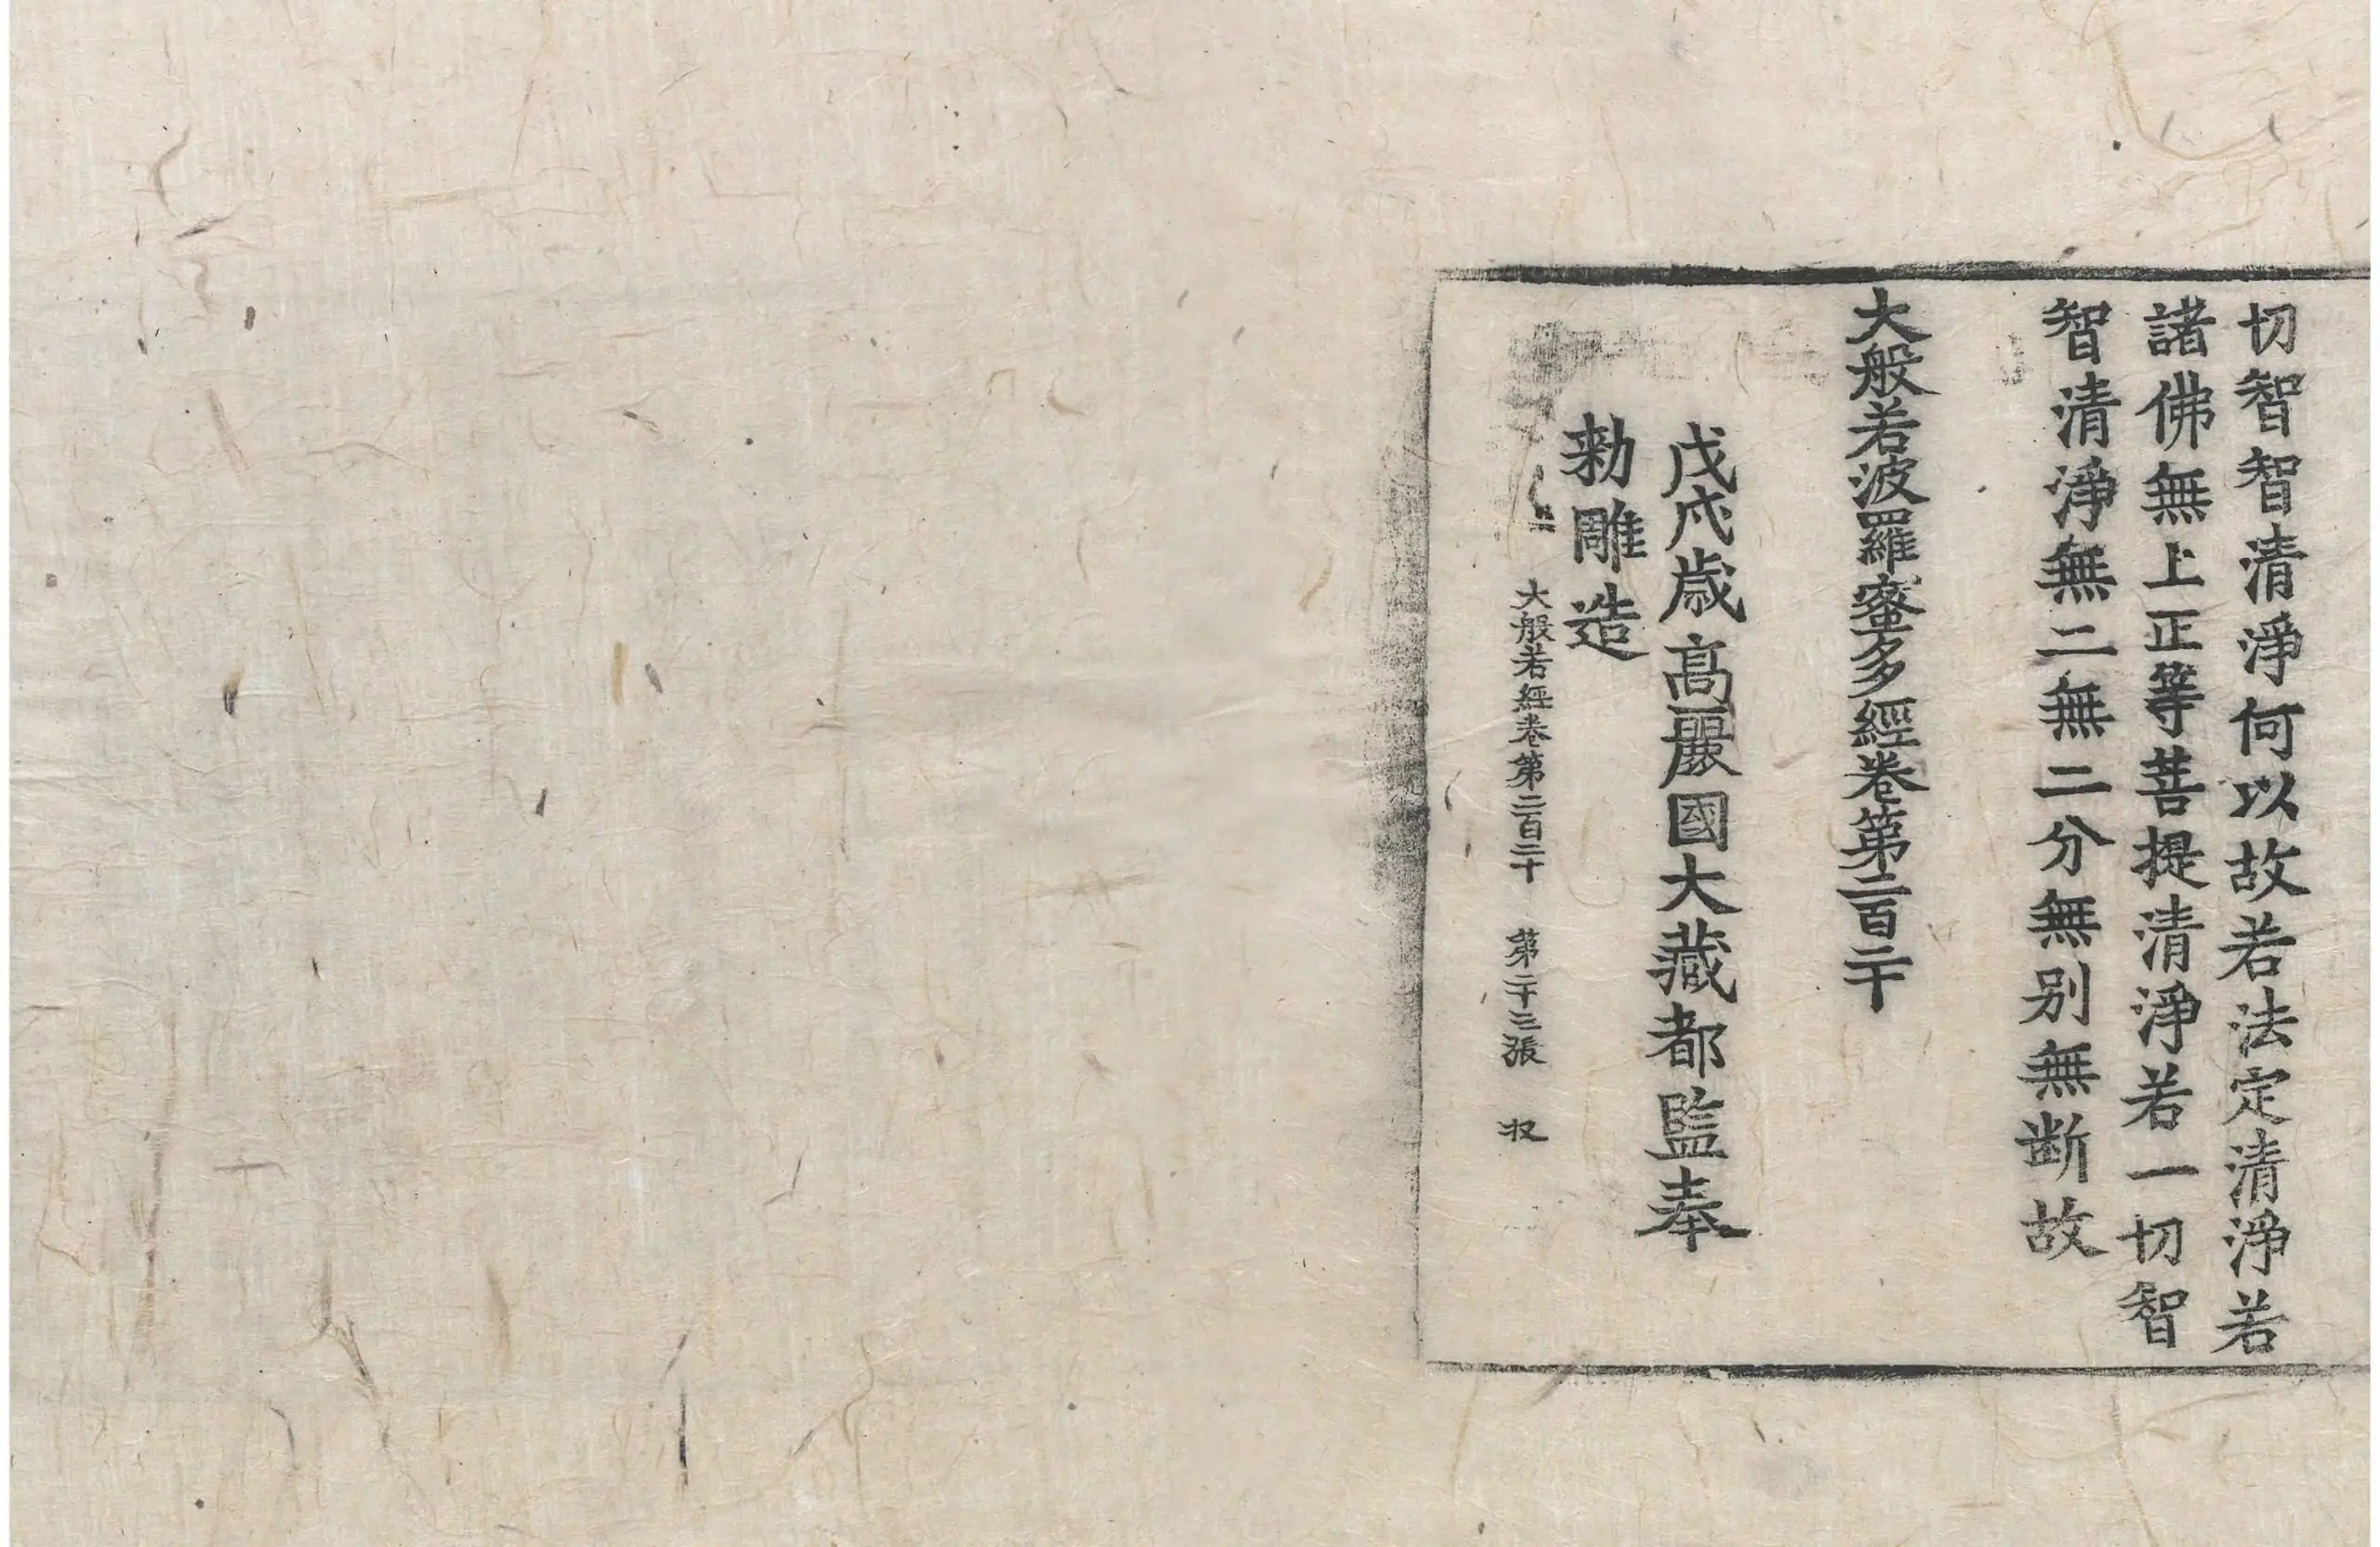 切智智清淨何以故若法定清淨若
諸佛無上正等菩提清淨若一切智
智清淨無二無二分無別無断故
大般若波羅蜜多經卷第二百二十
戊戌歲高麗國大藏都監奉
勅雕造
大般若經卷第二百二十 第二十三張